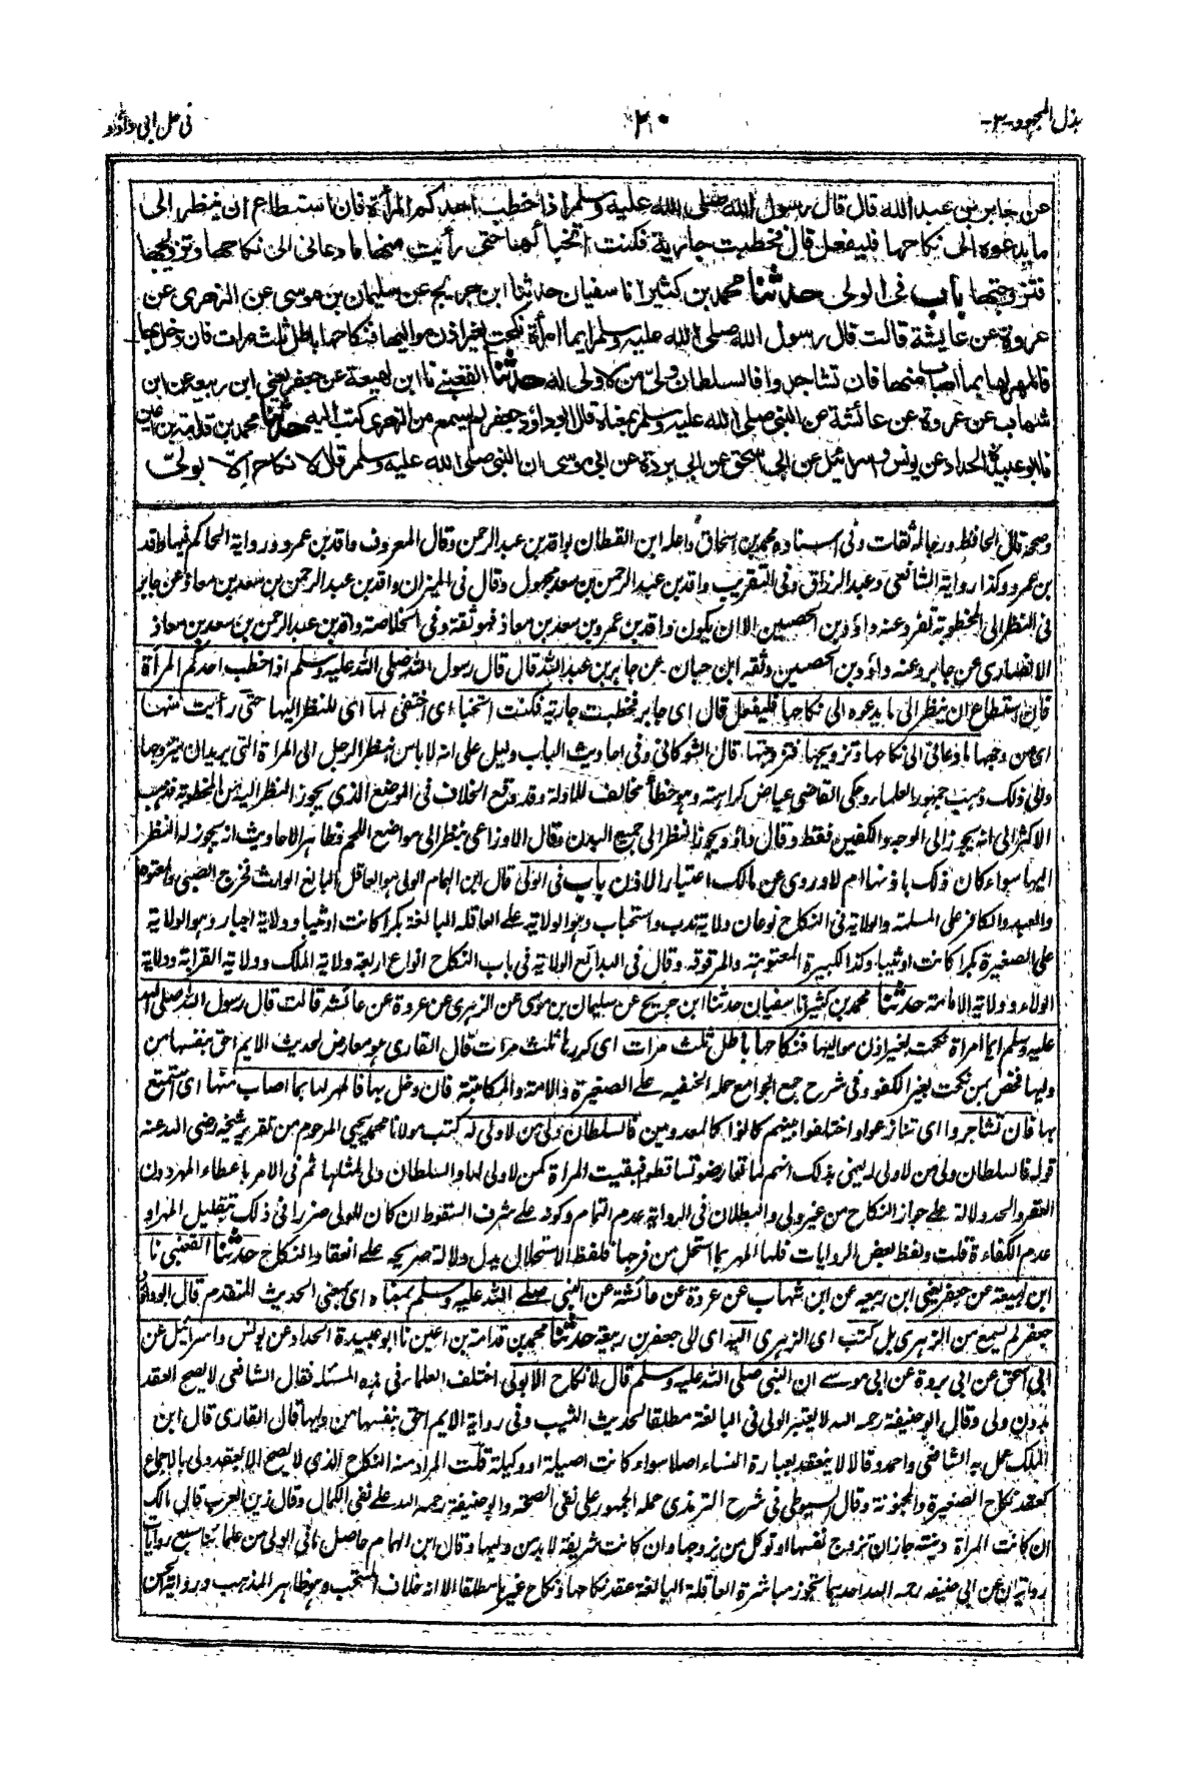 بذل المجهود-٣-
٢٠
فى حل ابى داؤد
عن جابر بن عبد الله قال قال رسول الله صلى الله عليه وسلم اذا خطب احدكم المرأة فان استطاع ان ينظر الى
ما يدعوه الى نكاحها فليفعل قال فخطبت جارية فكنت اتخبأ لها حتى رأيت منها ما دعانى الى نكاحها وتزويجها
فتزوجتها باب فى الولى حدثنا محمد بن كثير انا سفيان حدثنا ابن جريج عن سليمان بن موسى عن الزهرى عن
عروة عن عايشة قالت قال رسول الله صلى الله عليه وسلم ايما امرأة نكحت بغير اذن مواليها فنكاحها باطل ثلث مرات فان دخل بها
فالمهر لها بما اصاب منها فان تشاجروا فالسلطان ولى من لا ولى له حدثنا القعنبى نا ابن لهيعة عن جعفر يعنى ابن ربيعة عن ابن
شهاب عن عروة عن عائشة عن النبى صلى الله عليه وسلم بمعناه قال ابو داود جعفر لم يسمع من الزهرى كتب اليه حدثنا محمد بن قدامة بن اعين
نا ابو عبيدة الحداد عن يونس واسرائيل عن ابى اسحق عن ابى بردة عن ابى موسى ان النبى صلى الله عليه وسلم قال لا نكاح الا بولى
وصححه قال الحافظ ورجاله ثقات وفى اسناده محمد بن اسحاق واعله ابن القطان بواقد بن عبد الرحمن وقال المعروف واقد بن عمرو ورواية الحاكم فيها واقد
بن عمرو وكذا رواية الشافعى وعبد الرزاق وفى التقريب واقد بن عبد الرحمن بن سعد مجهول وقال فى الميزان واقد بن عبد الرحمن بن سعد بن معاذ عن جابر
فى النظر الى المخطوبة تفرد عنه داؤد بن الحصين الا ان يكون واقد بن عمرو بن سعد بن معاذ فهو ثقة وفى الخلاصة واقد بن عبد الرحمن بن سعد بن معاذ
الانصارى عن جابر وعنه داؤد بن الحصين وثقه ابن حبان عن جابر بن عبد الله قال قال رسول الله صلى الله عليه وسلم اذا خطب احدكم المرأة
فان استطاع ان ينظر الى ما يدعوه الى نكاحها فليفعل قال اى جابر فخطبت جارية فكنت اتخبأ اى اختفى لها اى للنظر اليها حتى رأيت منها
اى من وجهها ما دعانى الى نكاحها وتزويجها فتزوجتها قال الشوكانى وفى احاديث الباب دليل على انه لا باس بنظر الرجل الى المرأة التى يريدان يتزوجها
والى ذلك ذهب جمهور العلماء وحكى القاضى عياض كراهته وهو خطأ مخالف للادلة وقد وقع الخلاف فى الموضع الذى يجوز النظر اليه من المخطوبة فذهب
الاكثر الى انه يجوز الى الوجه والكفين فقط وقال داؤد ويجوز النظر الى جميع البدن وقال الاوزاعى ينظر الى مواضع اللحم وظاهر الاحاديث انه يجوز له النظر
اليها سواء كان ذلك باذنها ام لا وروى عن مالك اعتبار الاذن باب فى الولى قال ابن الهمام الولى هو العاقل البالغ الوارث فخرج الصبى والمعتوه
والعبد والكافر على المسلمة والولاية فى النكاح نوعان ولاية ندب واستحباب وهو الولاية على العاقلة البالغة بكرا كانت او ثيبا وولاية اجبار وهو الولاية
على الصغيرة بكرا كانت او ثيبا وكذا الكبيرة المعتوهة والمرقوقة وقال فى البدائع الولاية فى باب النكاح انواع اربعة ولاية الملك وولاية القرابة وولاية
الولاء وولاية الامامة حدثنا محمد بن كثير انا سفيان حدثنا ابن جريج عن سليمان بن موسى عن الزهرى عن عروة عن عائشة قالت قال رسول الله صلى الله
عليه وسلم ايما امرأة نكحت بغير اذن مواليها فنكاحها باطل ثلث مرات اى كررها ثلث مرات قال القارى هو معارض لحديث الايم احق بنفسها من
وليها فخص بمن نكحت بغير الكفو وفى شرح جمع الجوامع حمله الحنفيه على الصغيرة والامة والمكاتبة فان دخل بها فالمهر لها بما اصاب منها اى استمتع
بها فان تشاجروا اى تنازعوا واختلفوا بينهم كانوا كالمعدومين فالسلطان ولى من لا ولى له كتب مولانا محمد يحيى المرحوم من تقرير شيخه رضى الله عنه
قوله فالسلطان ولى من لا ولى له يعنى بذلك انهم لما تعارضوا تساقطوا فبقيت المرأة كمن لا ولى لها والسلطان ولى لمثلها ثم فى الامر باعطاء المهر دون
العقر والحد دلالة على جواز النكاح من غير ولى والبطلان فى الرواية عدم التمام وكونه على شرف السقوط ان كان للولى ضررا فى ذلك بتقليل المهر او
عدم الكفاءة قلت ولفظ بعض الروايات فلها المهر بما استحل من فرجها فلفظ الاستحلال يدل دلالة صريحة على انعقاد النكاح حدثنا القعنبى نا
ابن لهيعة عن جعفر يعنى ابن ربيعه عن ابن شهاب عن عروة عن عائشة عن النبى صلى الله عليه وسلم بمعناه اى بمعنى الحديث المتقدم قال ابو داؤد
جعفر لم يسمع من الزهرى بل كتب اى الزهرى اليه اى الى جعفر بن ربيعة حدثنا محمد بن قدامة بن اعين نا ابو عبيدة الحداد عن يونس واسرائيل عن
ابى اسحق عن ابى بردة عن ابى موسى ان النبى صلى الله عليه وسلم قال لا نكاح الا بولى اختلف العلماء فى هذه المسئلة فقال الشافعى لا يصح العقد
بدون ولى وقال ابو حنيفة رحمه الله لا يعتبر الولى فى البالغة مطلقا لحديث الثيب وفى رواية الايم احق بنفسها من وليها قال القارى قال ابن
الملك عمل به الشافعى واحمد وقالا لا ينعقد بعبارة النساء اصلا سواء كانت اصيلة او وكيلة قلت المراد منه النكاح الذى لا يصح الا بعقد ولى بالاجماع
كعقد نكاح الصغيرة والمجنونة وقال السيوطى فى شرح الترمذى حمله الجمهور على نفى الصحة وابو حنيفة رحمه الله على نفى الكمال وقال زين العرب قال مالك
ان كانت المرأة دنيئة جاز ان تزوج نفسها او توكل من يزوجها وان كانت شريفة لا بد من وليها وقال ابن الهمام حاصل ما فى الولى من علمائنا سبع روايات
روايتان عن ابى حنيفه رحمه الله احدهما تجوز مباشرة العاقلة البالغة عقد نكاحها ونكاح غيرها مطلقا الا انه خلاف المستحب وهو ظاهر المذهب ورواية الحسن